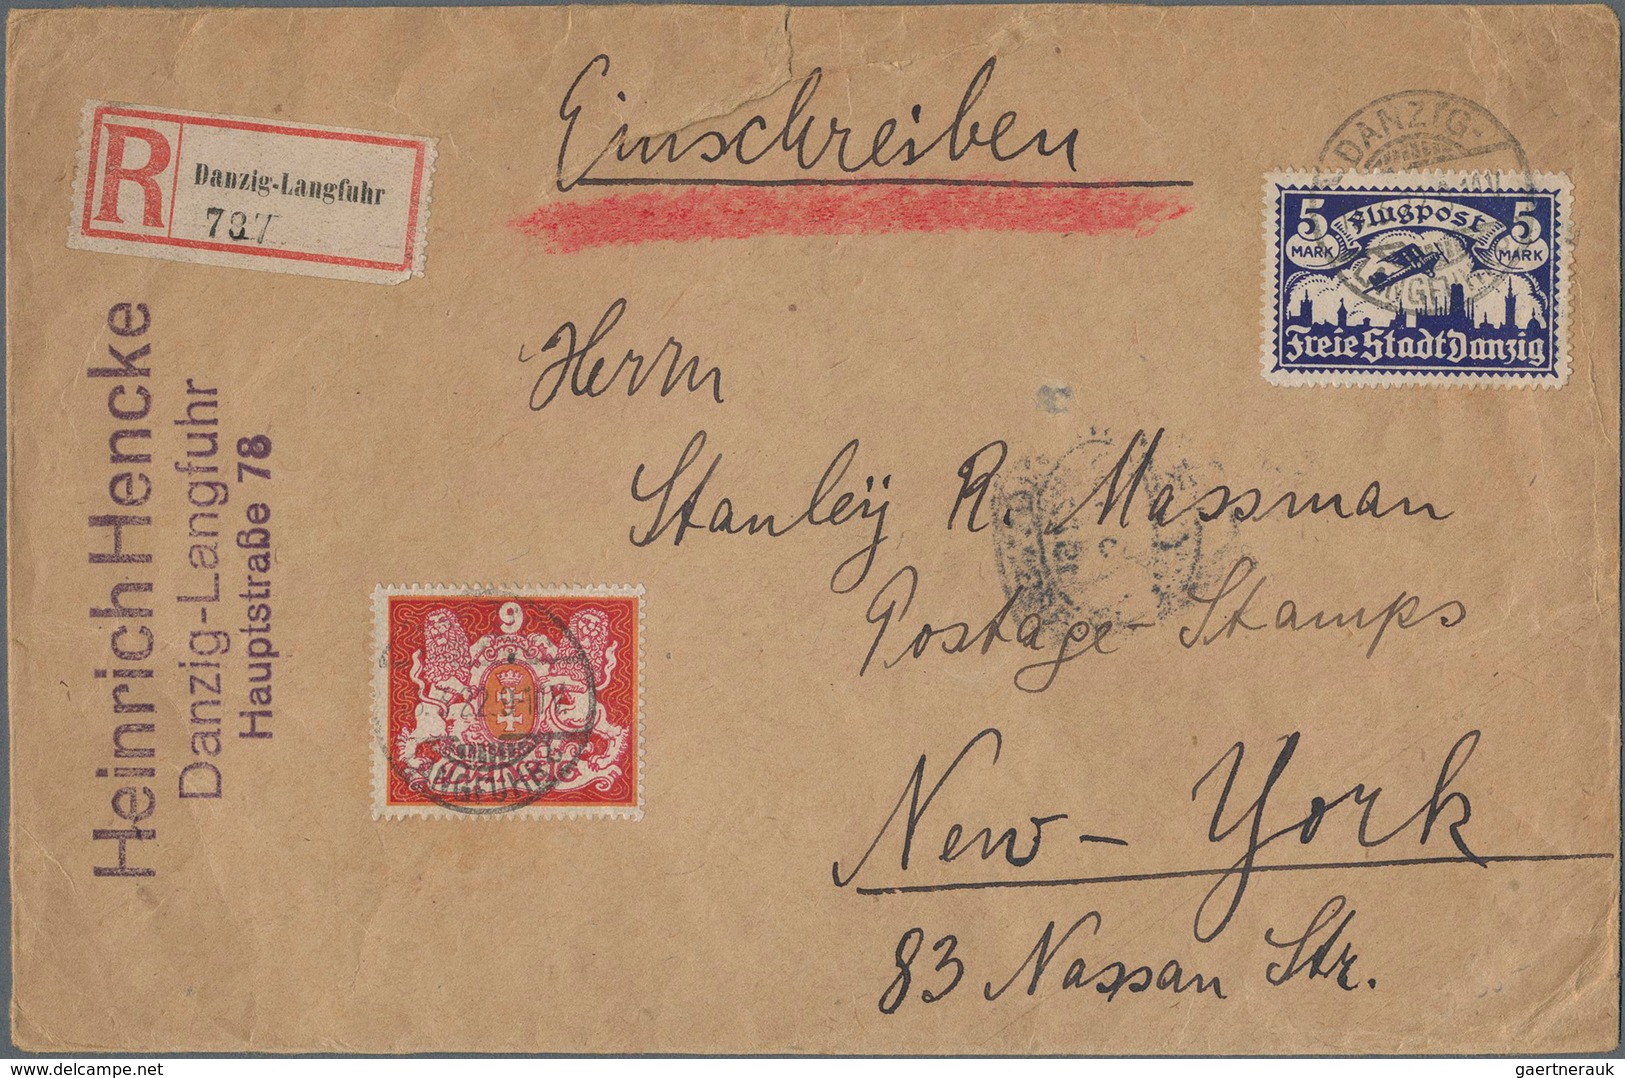 Einschreiben
R
Danzig-Langfuhr
787
DANZIG-
5 Flugpost 5
MARK MARK
Freie Stadt Danzig
Heinrich Hencke
Danzig-Langfuhr
Hauptstraße 78
Herrn
Stanley R. Massman
Postage-Stamps
New-York
83 Nassan Str.
9
MARK
22.9-10V.
DANZIG
delcampe.net
gaertnerauk